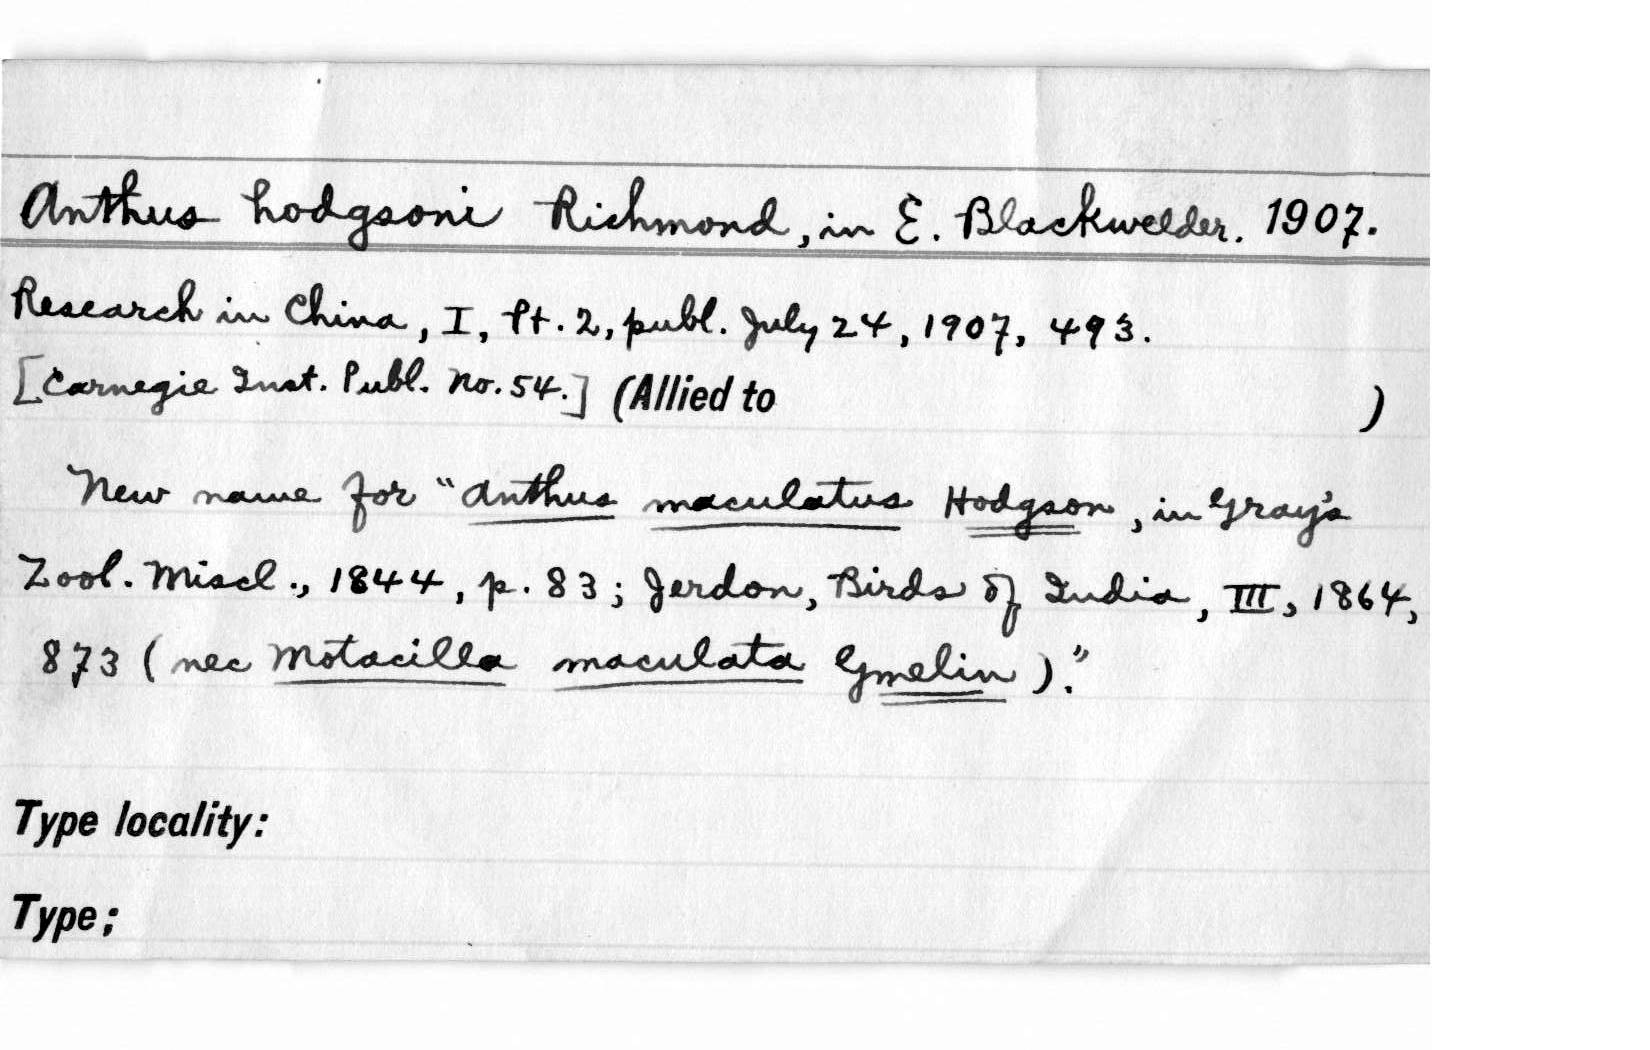 Anthus hodgsoni Richmond, in E. Blackwelder. 1907.
Research in China, I, Pt. 2, publ. July 24, 1907, 493.
[Carnegie Inst. Publ. No. 54.] (Allied to )
New name for "Anthus maculatus Hodgson, in Gray's
Zool. Miscl., 1844, p. 83; Jerdon, Birds of India, III, 1864,
873 (nec Motacilla maculata Gmelin)."
Type locality:
Type;